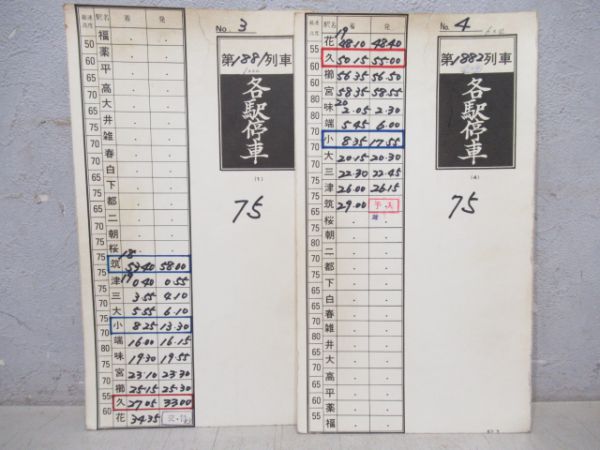 No. 3
最速速度 駅名 着 発
福
50 薬
平
60 高
大
50 井
雑
春
60 白
下
70 都
二
朝
75 桜
18
75 筑 53.40 58.00
19
75 津 0.40 0.55
70 三 3.55 4.10
大 5.55 6.10
75 小 8.25 13.30
70 端 16.00 16.15
味 19.30 19.55
60 宮 23.10 23.30
70 櫛 25.15 25.30
55 久 27.05 33.00
60 花 34.35
第1881列車
各駅停車
(1)
75
No. 4
最速速度 駅名 着 発
19
花 48.10 48.40
55 久 50.15 55.00
60 櫛 56.35 56.50
宮 58.35 58.55
20
味 2.05 2.30
端 5.45 6.00
小 8.35 17.55
大 20.15 20.30
三 22.30 22.45
津 26.00 26.15
筑 29.00
桜
朝
二
都
下
白
春
雑
井
大
高
平
薬
福
第1882列車
各駅停車
(4)
75